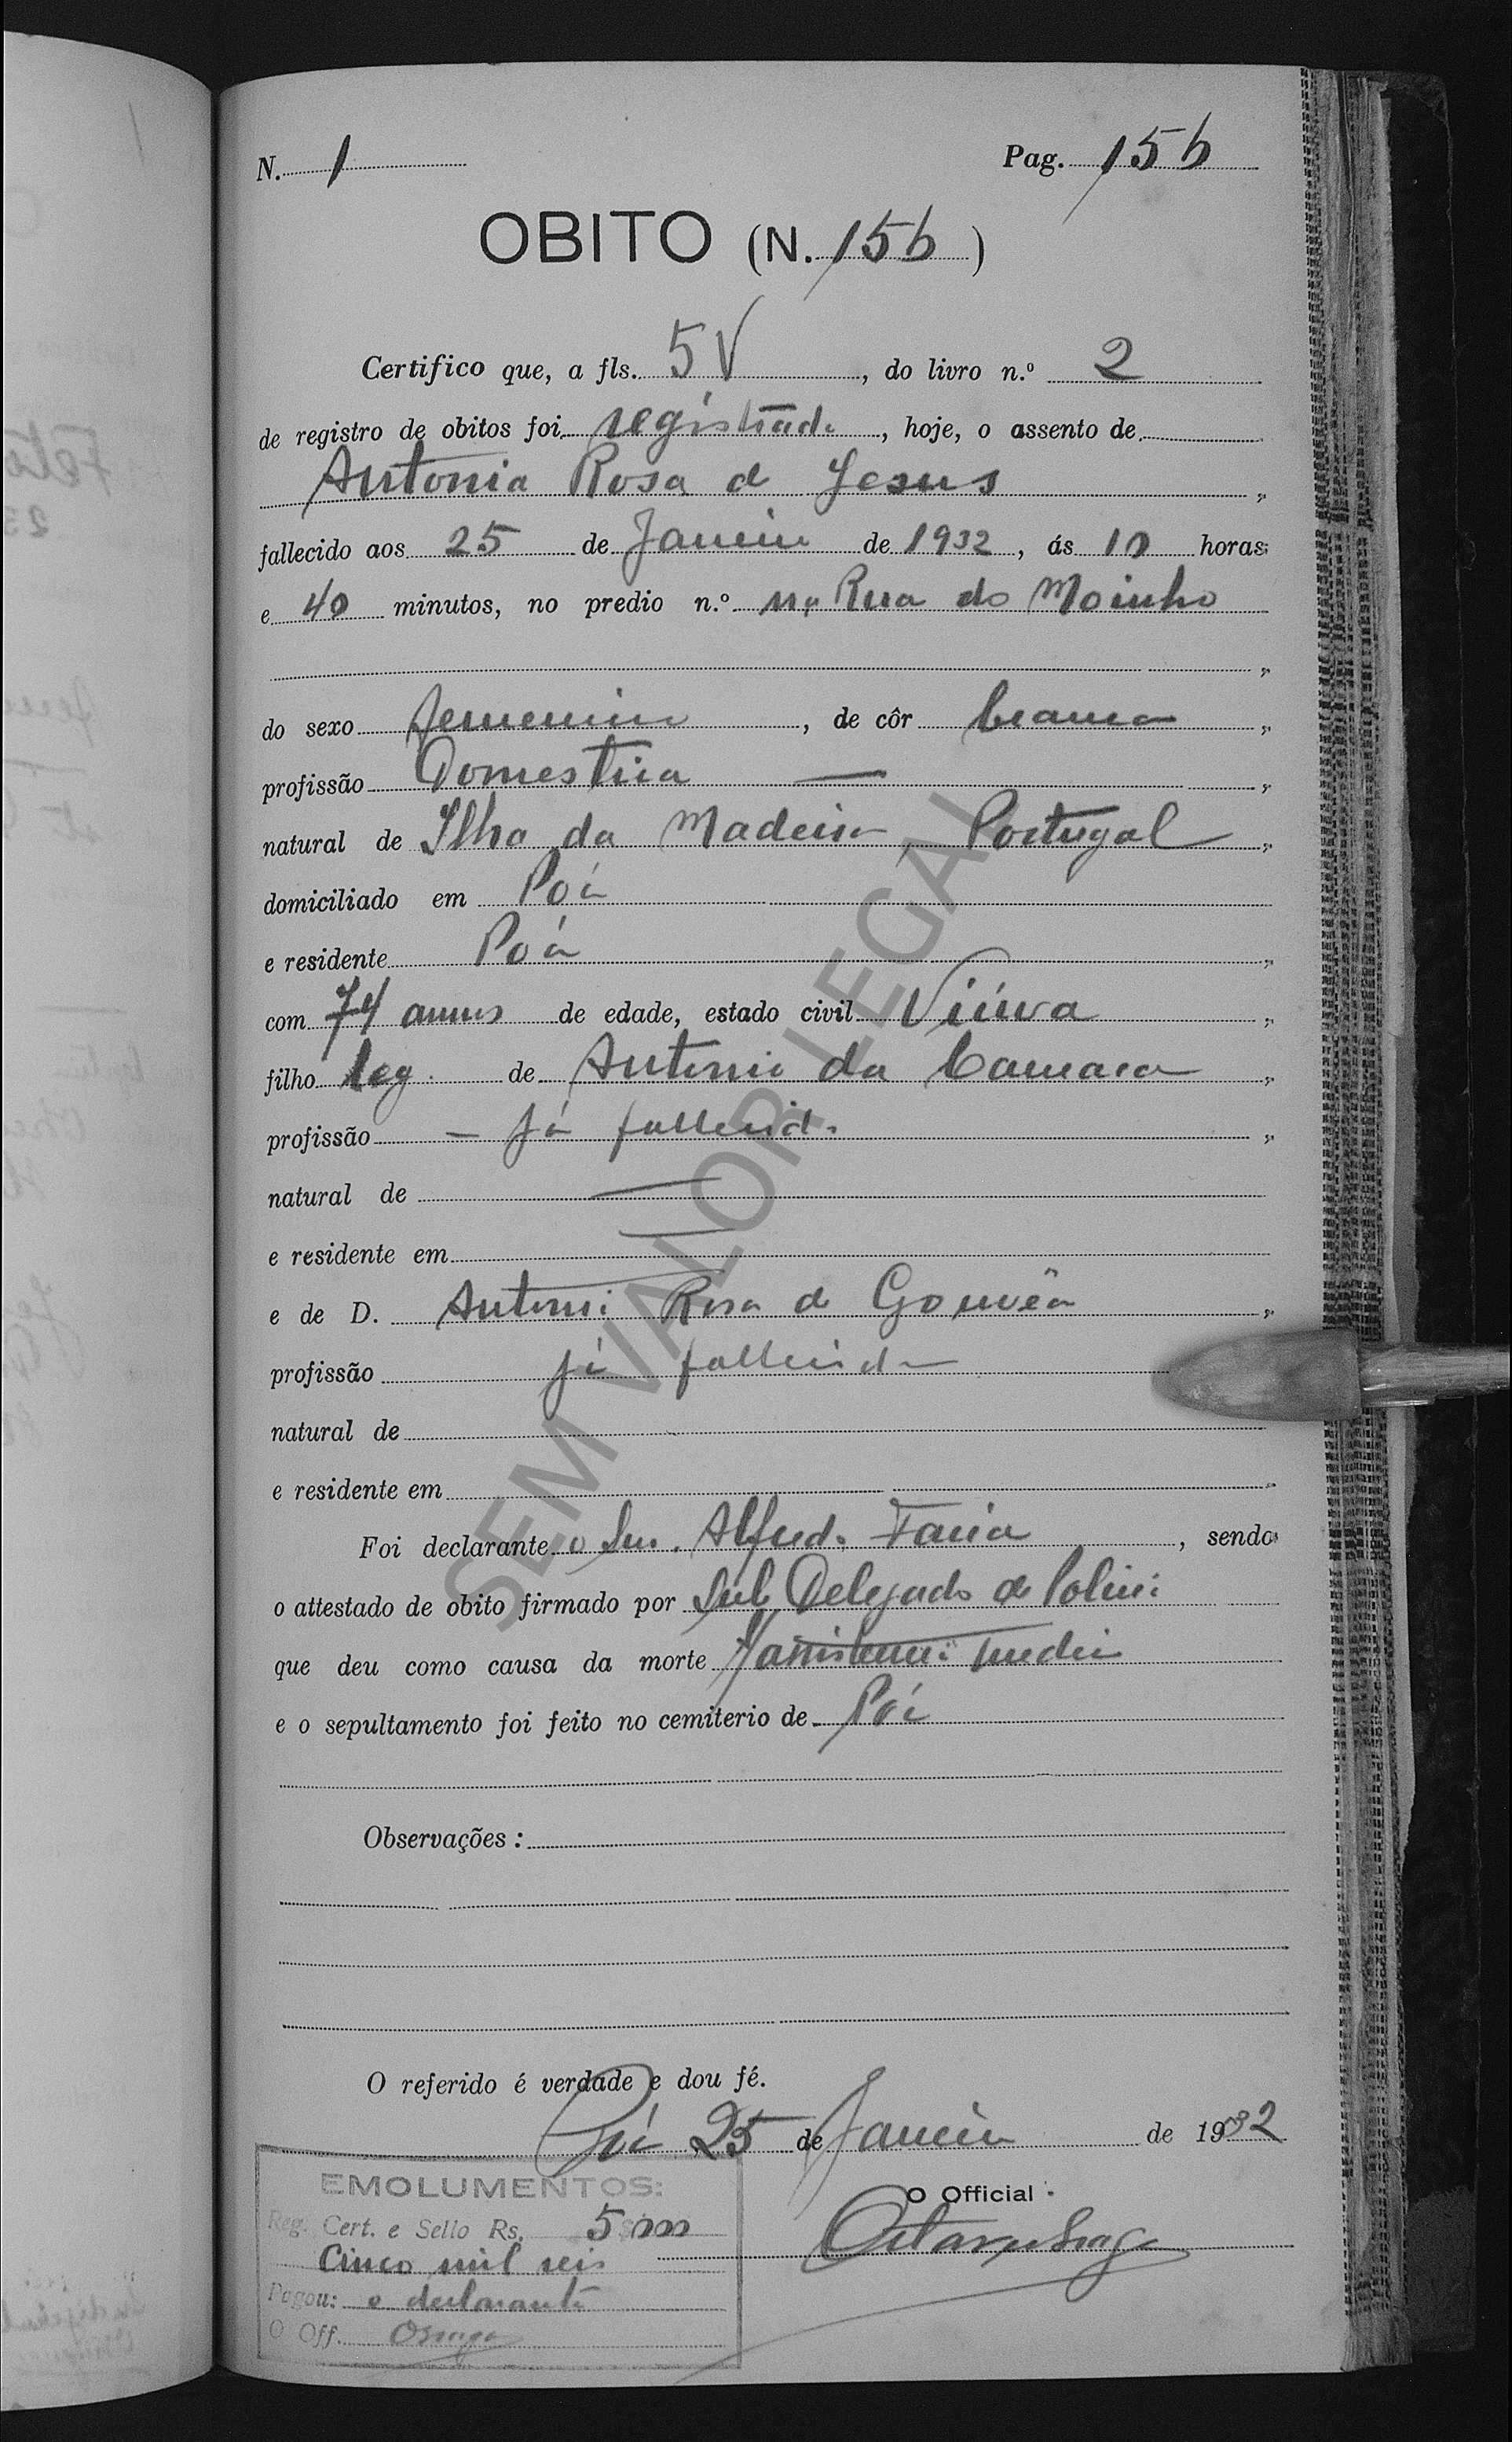 N. 1 Pag. 156
OBITO (N. 156)
Certifico que, a fls. 5V, do livro n.º 2
de registro de obitos foi registrado, hoje, o assento de
Antonia Rosa de Jesus,
fallecido aos 25 de Janeiro de 1932, ás 10 horas
e 40 minutos, no predio n.º na Rua do Moinho
,
do sexo femenino, de côr branca,
profissão Domestica —,
natural de Ilha da Madeira, Portugal,
domiciliado em Poá
e residente Poá,
com 74 annos de edade, estado civil Viúva,
filho leg. de Antonio da Camara,
profissão — já fallecido,
natural de —
e residente em —
e de D. Antonia Rosa de Gouvêa,
profissão já fallecida
natural de
e residente em
Foi declarante o Snr. Alfredo Faria, sendo
o attestado de obito firmado por Sub Delegado de Policia
que deu como causa da morte medica
e o sepultamento foi feito no cemiterio de Poá
Observações:
O referido é verdade e dou fé.
Poá, 25 de Janeiro de 1932
O Official
EMOLUMENTOS:
Reg. Cert. e Sello Rs. 5
Cinco mil reis
Pagou: o declarante
O Off.
SEM VALOR LEGAL